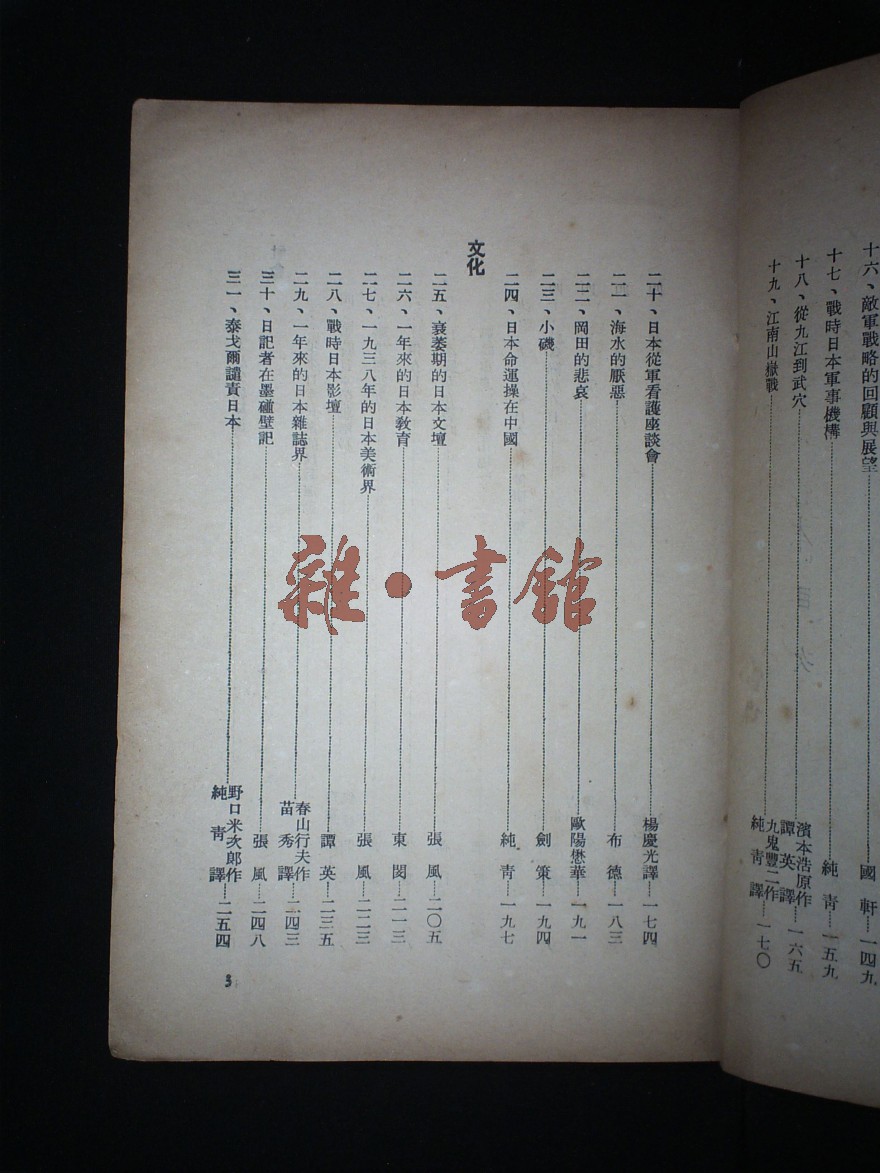 十六、敵軍戰略的回顧與展望……國軒……一四九
十七、戰時日本軍事機構……純青……一五九
十八、從九江到武穴……濱本浩原作 譚英譯……一六五
十九、江南山嶽戰……九鬼豐二作 純青譯……一七〇
二十、日本從軍看護座談會……楊慶光譯……一七四
二一、海水的厭惡……布德……一八三
二二、岡田的悲哀……歐陽懋華……一九一
二三、小磯……劍策……一九四
二四、日本命運操在中國……純青……一九七
文化
二五、衰萎期的日本文壇……張風……二〇五
二六、一年來的日本教育……東閔……二一三
二七、一九三八年的日本美術界……張風……二二三
二八、戰時日本影壇……譚英……二三五
二九、一年來的日本雜誌界……春山行夫作 苗秀譯……二四三
三十、日記者在墨碰壁記……張風……二四八
三一、泰戈爾譴責日本……野口米次郎作 純青譯……二五四
3
雜·書館